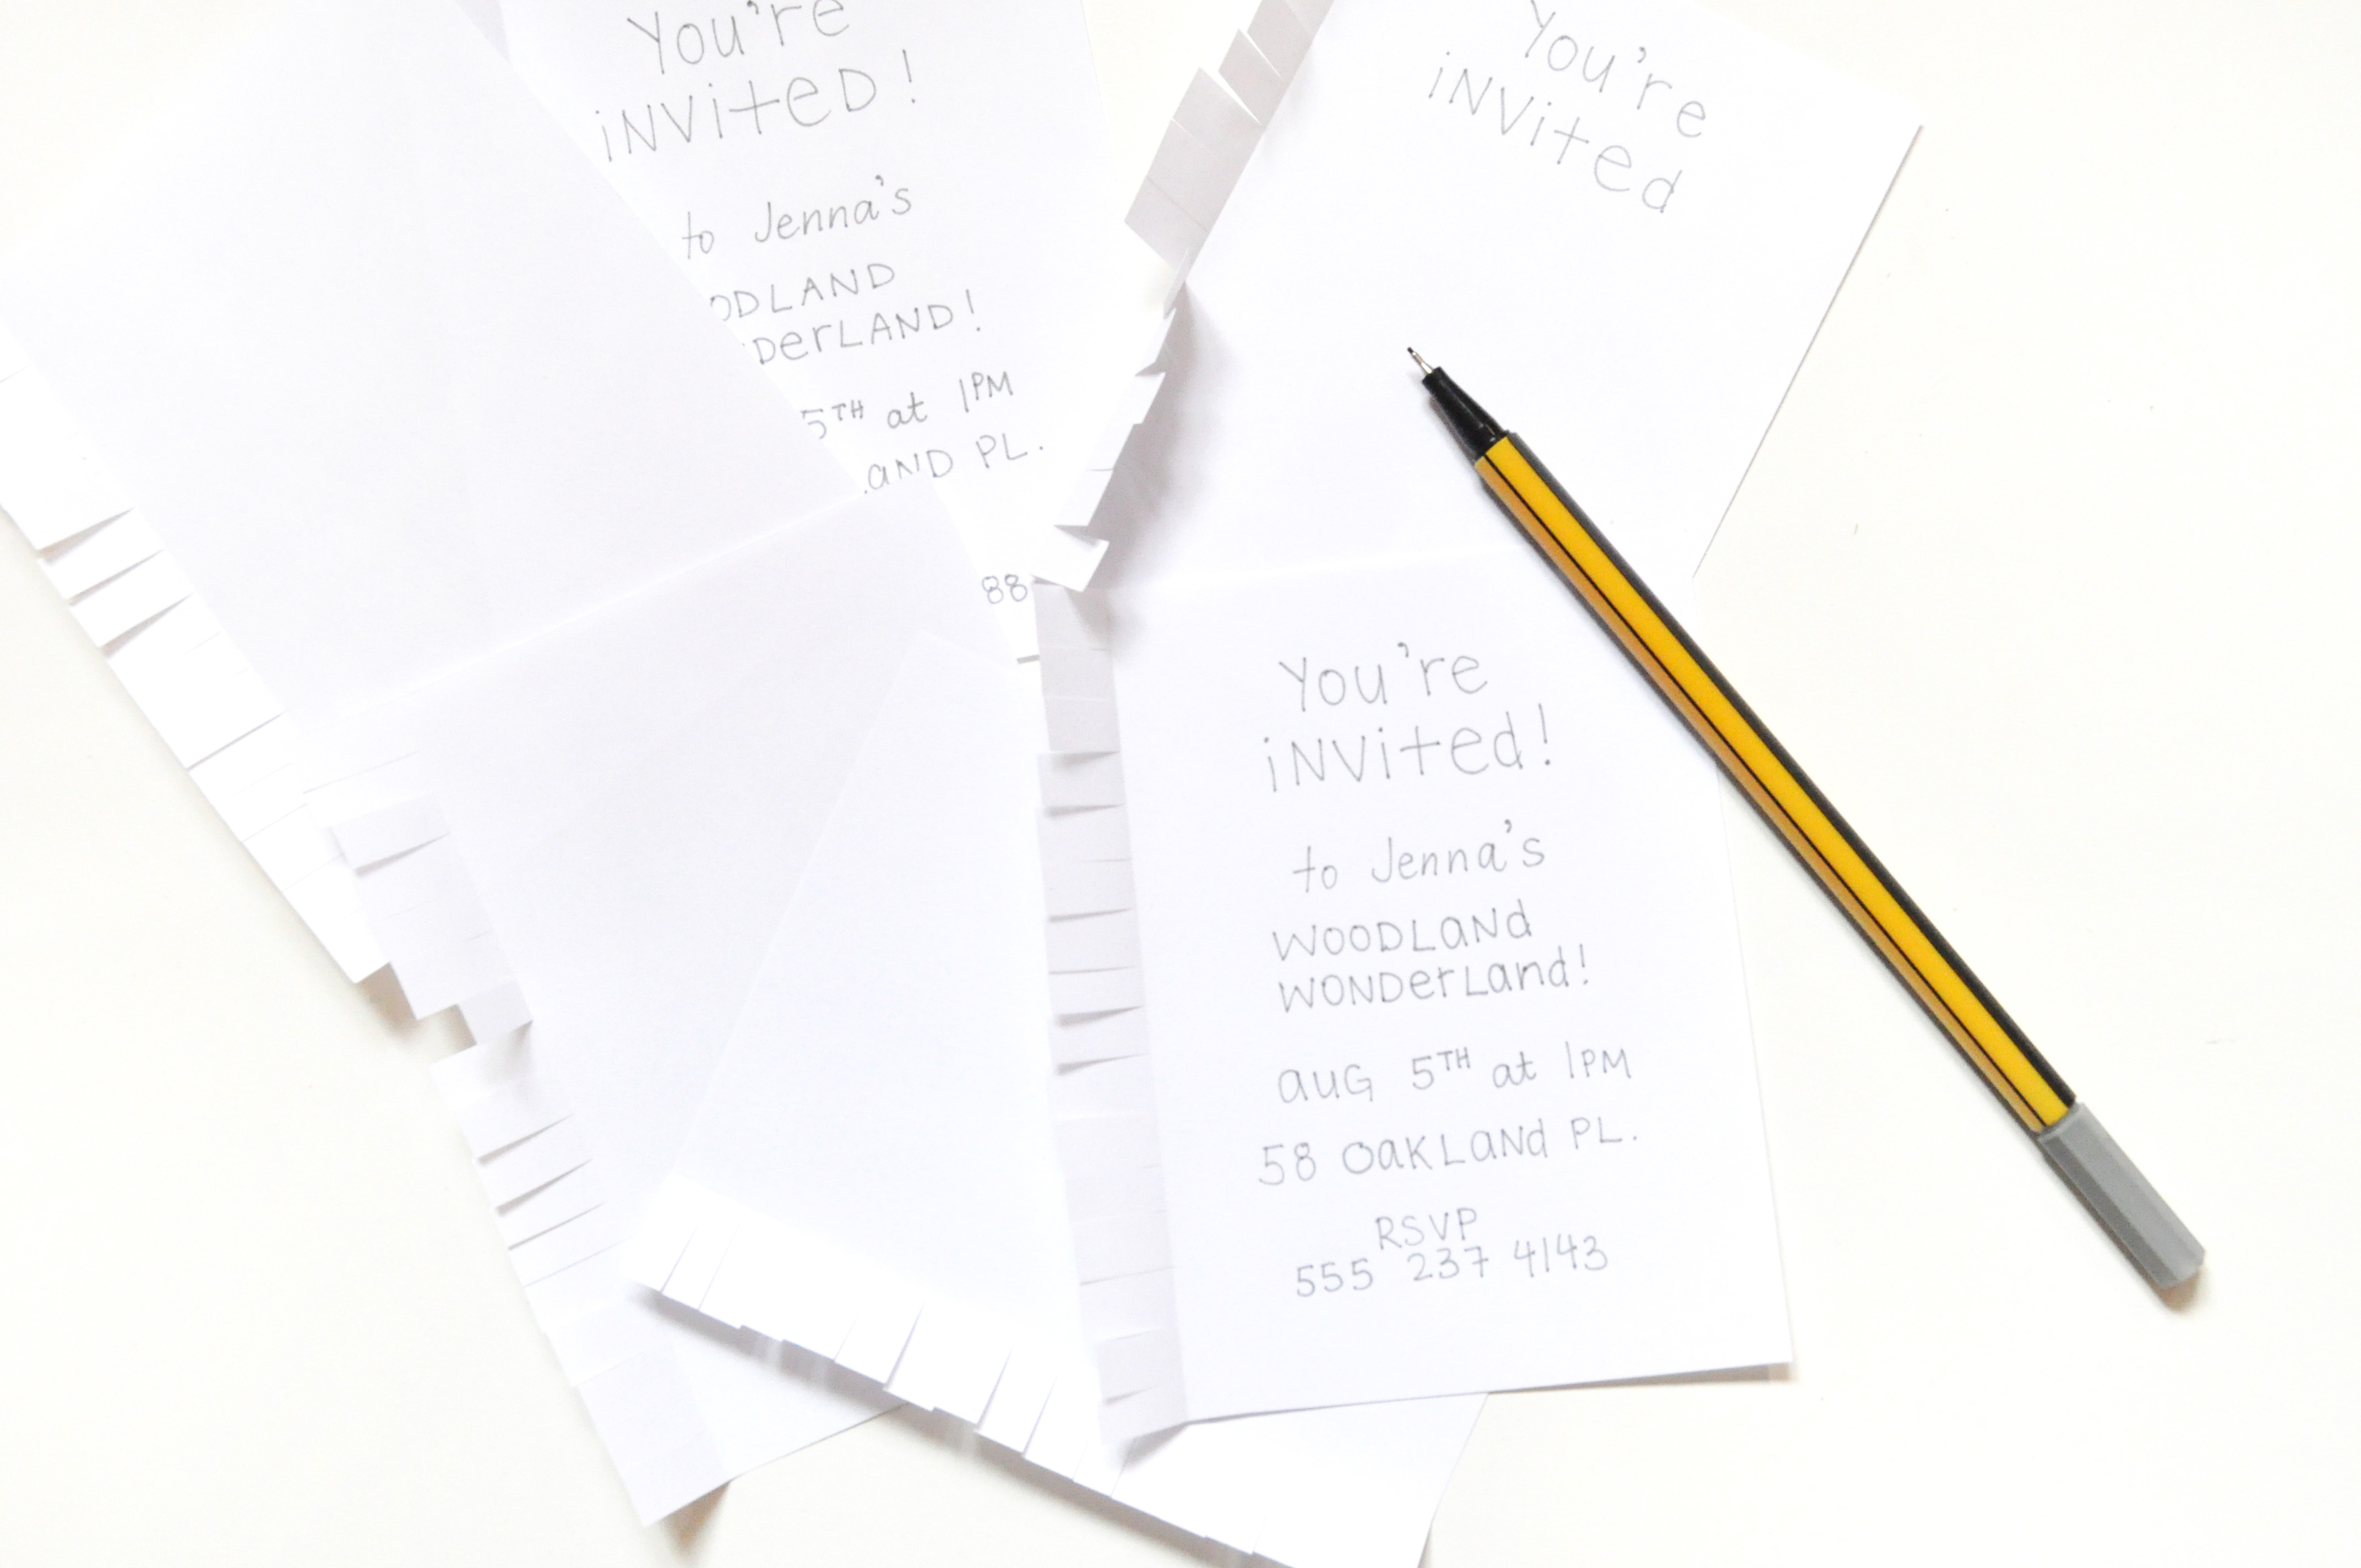 You're
iNViteD!
to Jenna's
ODLAND
DerLAND!
5TH at 1PM
AND PL.
88
You're
iNVited
You're
iNVited!
to Jenna's
WOODLaNd
WONDerLand!
auG 5TH at 1PM
58 OaKLaNd PL.
RSVP
555 237 4143